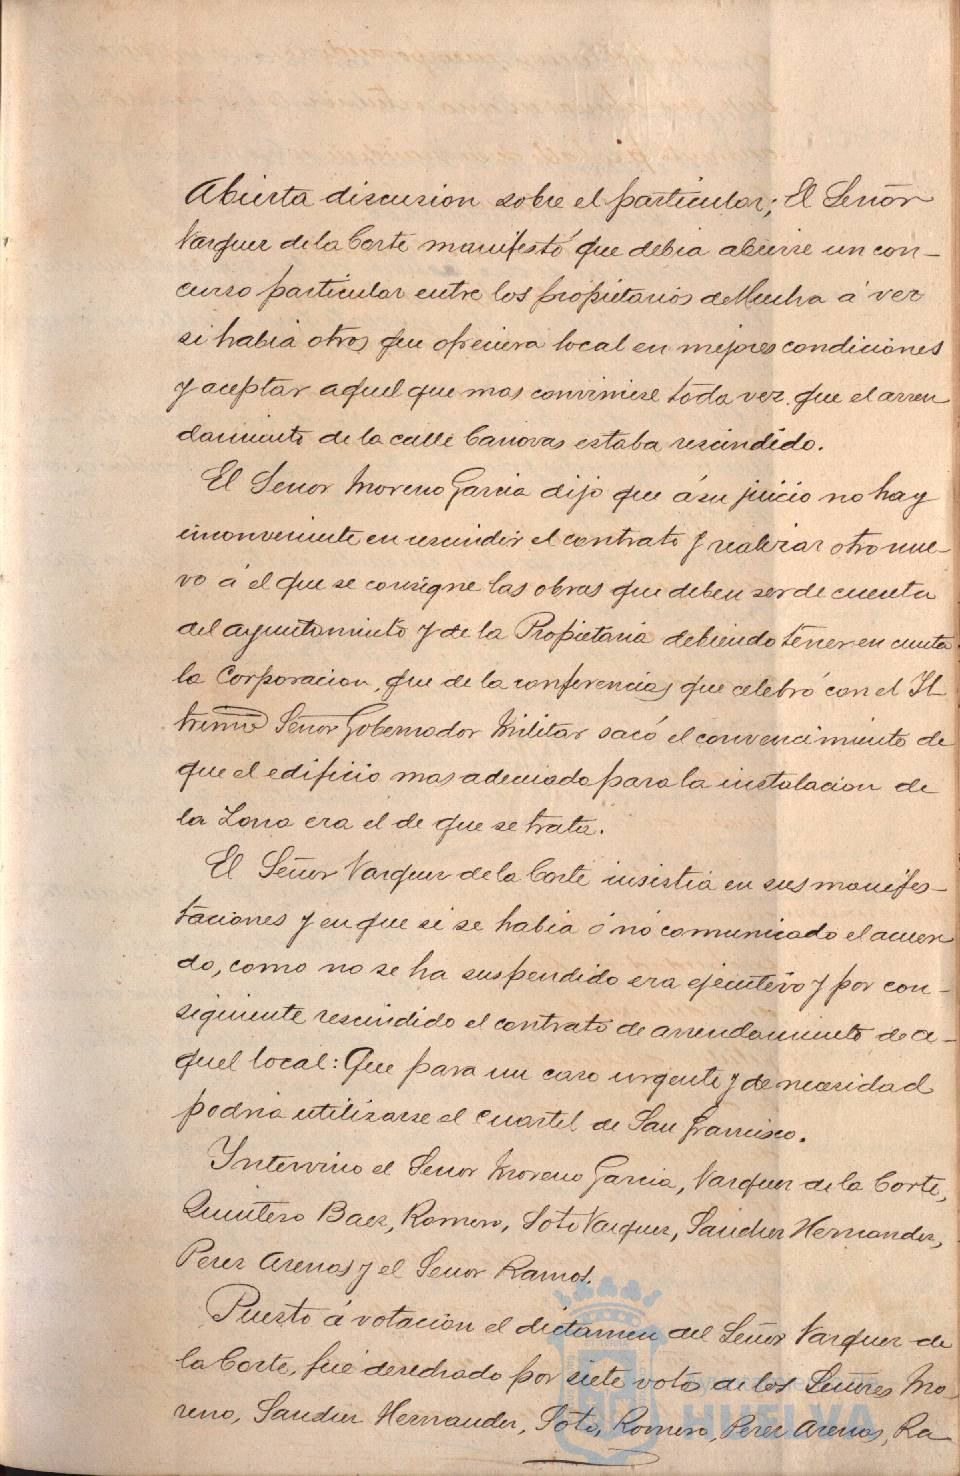 Abierta discusion sobre el particular; El Señor
Vazquez de la Corte manifestó que debia abrirse un con-
curso particular entre los propietarios de Huelva á ver
si habia otros que ofreciera local en mejores condiciones
y aceptar aquel que mas conviniese toda vez que el arren
damiento de la calle Canovas estaba rescindido.
El Señor Moreno Garcia dijo que á su juicio no hay
inconveniente en rescindir el contrato y realizar otro nue-
vo á el que se consigne las obras que deben ser de cuenta
del ayuntamiento y de la Propietaria debiendo tener en cuenta
la Corporacion, que de la conferencias que celebró con el Il
trimo Señor Gobernador Militar sacó el convencimiento de
que el edificio mas adecuado para la instalacion de
la Zona era el de que se trata.
El Señor Vazquez de la Corte insistia en sus manifes-
taciones y en que si se habia ó nó comunicado el acuer
do, como no se ha suspendido era ejecutivo y por con-
siguiente rescindido el contrato de arrendamiento de a-
quel local: Que para un caso urgente y de necesidad
podria utilizarse el Cuartel de San Francisco.
Intervino el Señor Moreno Garcia, Vazquez de la Corte,
Quintero Baez, Romero, Soto Vazquez, Sanchez Hernandez,
Perez Arenas y el Señor Ramos.
Puesto á votacion el dictamen del Señor Vazquez de
la Corte, fué desechado por siete votos de los Señores Mo-
reno, Sanchez Hernandez, Soto, Romero, Perez Arenas, Ra
HUELVA